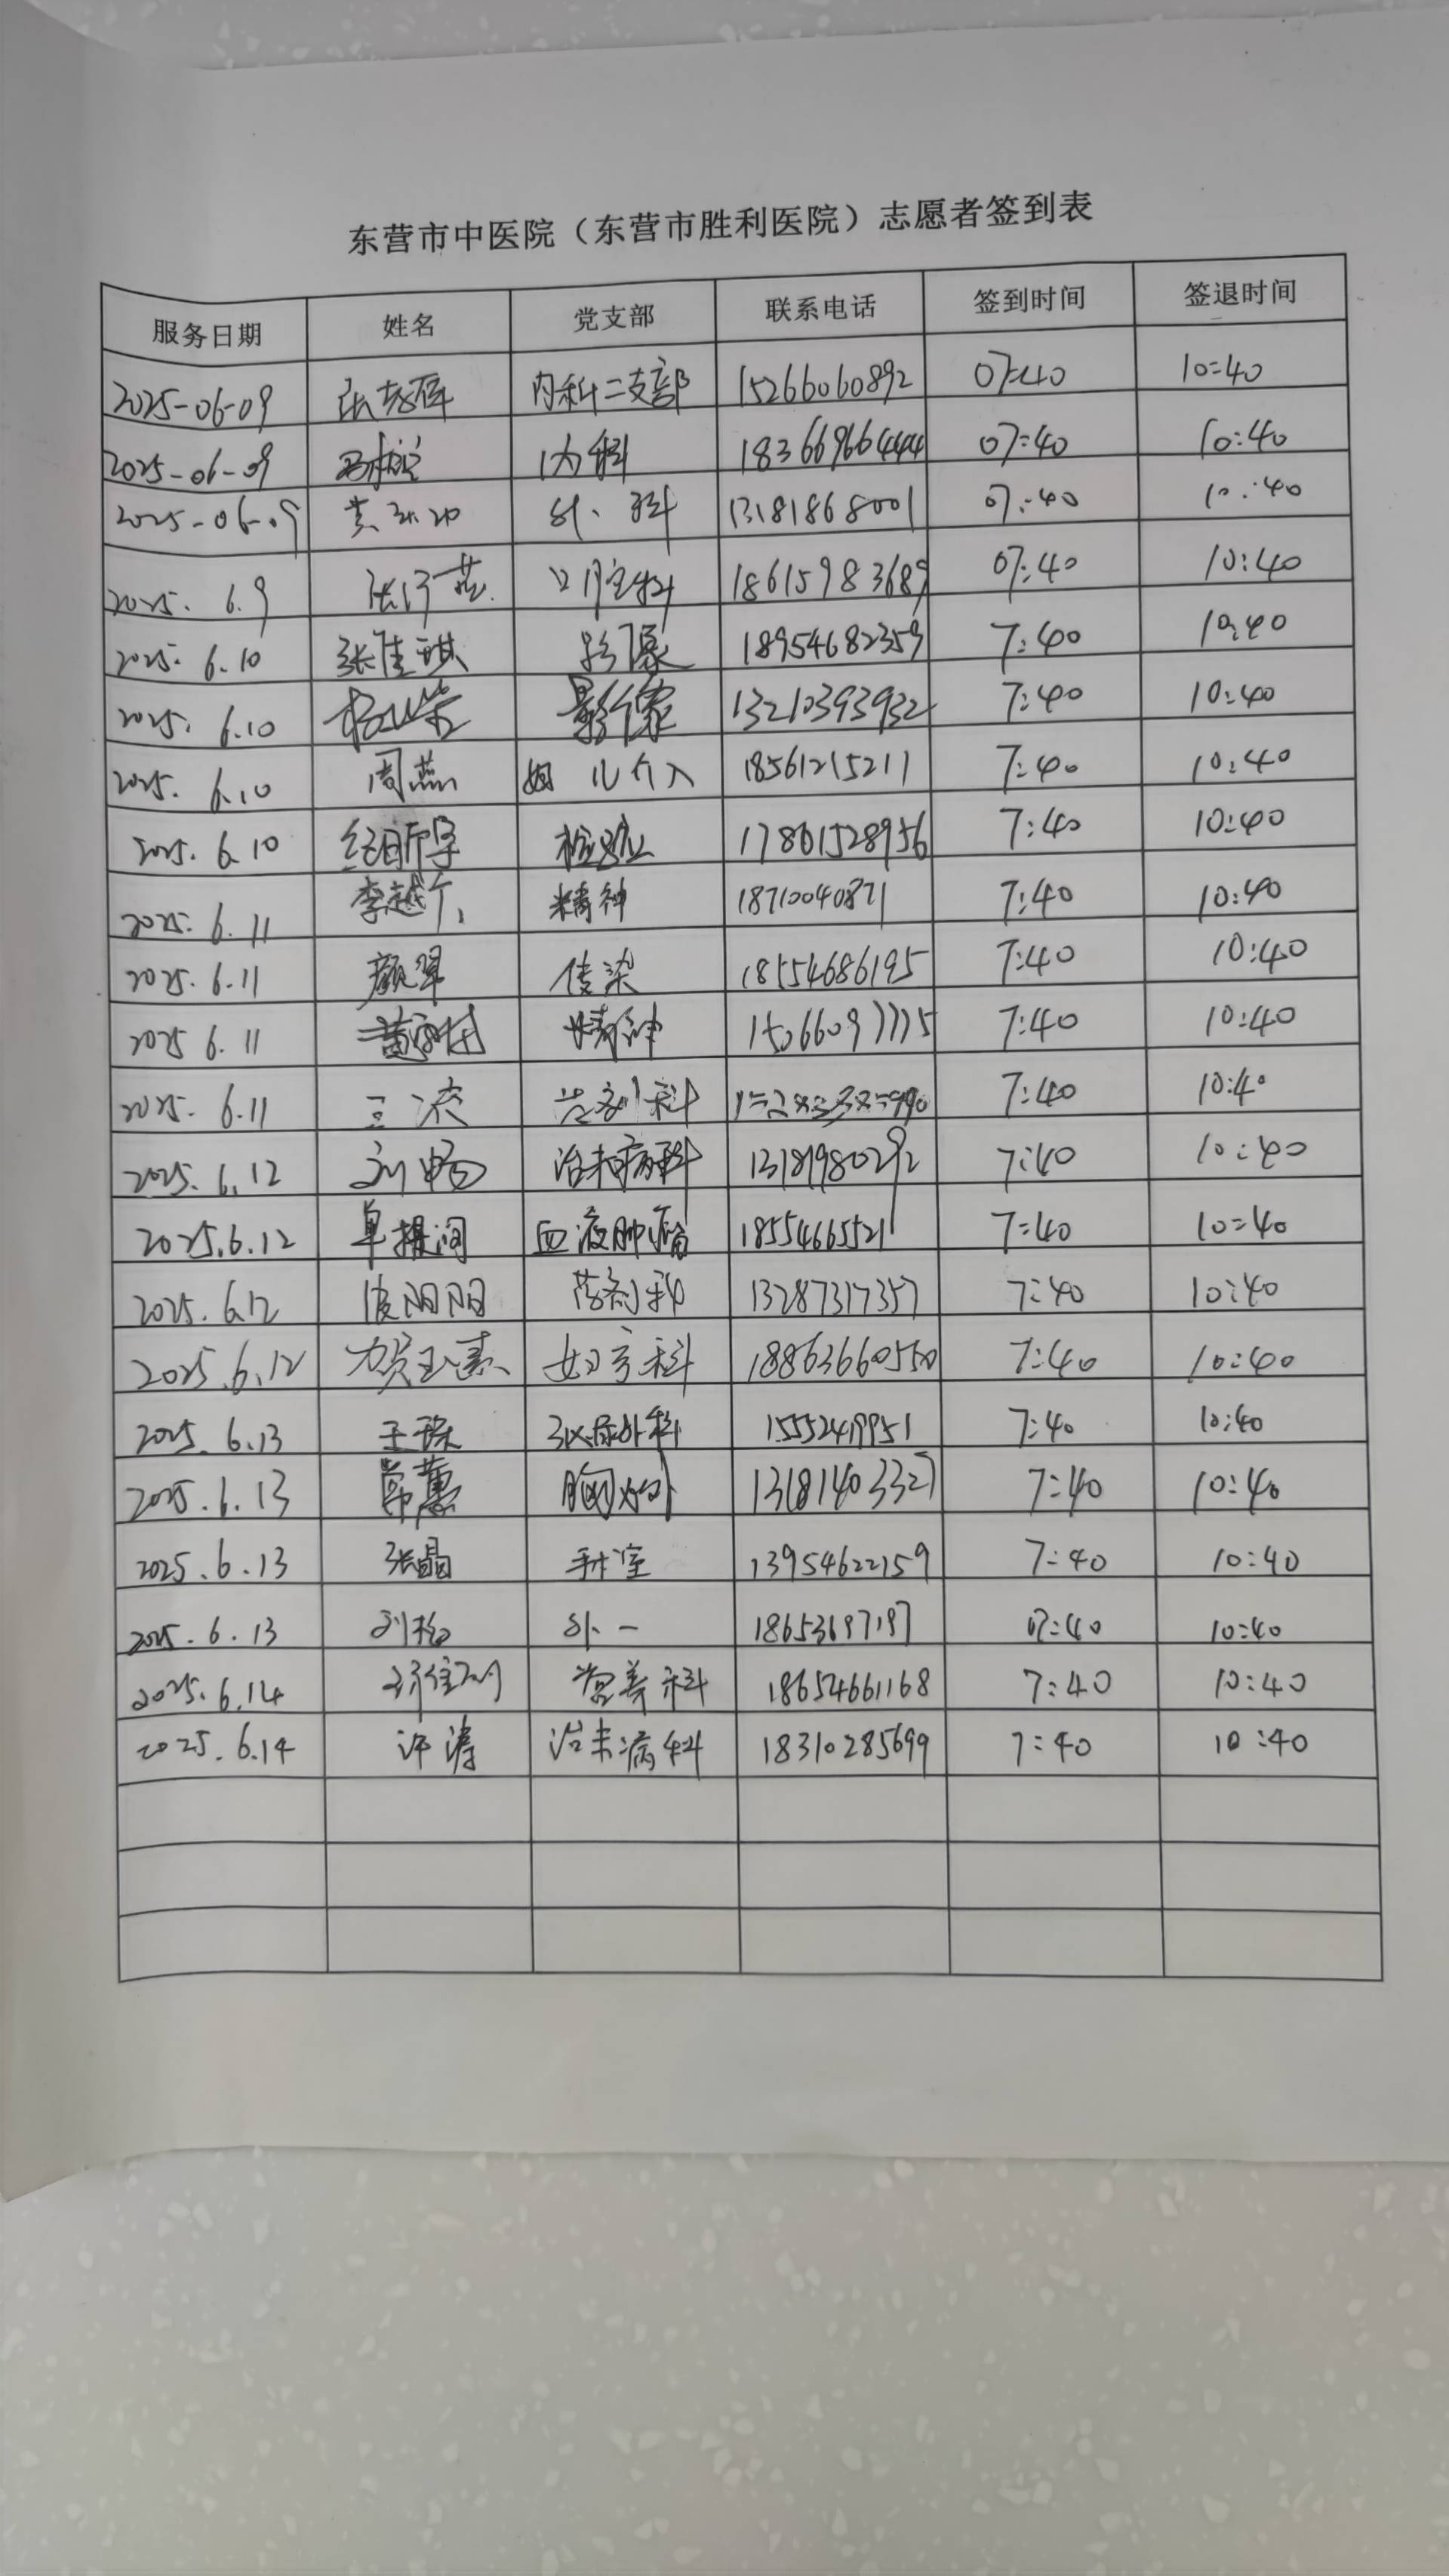 东营市中医院（东营市胜利医院）志愿者签到表
服务日期 姓名 党支部 联系电话 签到时间 签退时间
2025-06-09 内科二支部 15266060892 07:40 10:40
2025-06-09 内科 18366966444 07:40 10:40
2025-06-09 外科 13181868001 07:40 10:40
2025. 6.9 口腔科 18615983689 07:40 10:40
2025. 6.10 张佳琪 影像 18954682359 7:40 10:40
2025. 6.10 影像 13210393932 7:40 10:40
2025. 6.10 周燕 妇儿介入 18561215211 7:40 10:40
2025. 6.10 检验 17861528956 7:40 10:40
2025. 6.11 精神 18710040871 7:40 10:40
2025. 6.11 颜翠 传染 18554686195 7:40 10:40
2025 6.11 精神 7:40 10:40
2025. 6.11 7:40 10:40
2025. 6.12 刘畅 治未病科 13181980292 7:40 10:40
2025.6.12 血液肿瘤 18554665521 7:40 10:40
2025.6.12 药剂科 13287317357 7:40 10:40
2025.6.12 贺玉素 妇产科 18863660550 7:40 10:40
2025.6.13 泌尿外科 15552419951 7:40 10:40
2025.6.13 常蕙 13181403327 7:40 10:40
2025.6.13 张晶 手术室 13954622159 7:40 10:40
2025.6.13 刘松 外一 18653697197 07:40 10:40
2025.6.14 营养科 18654661168 7:40 10:40
2025.6.14 许涛 治未病科 18310285699 7:40 10:40